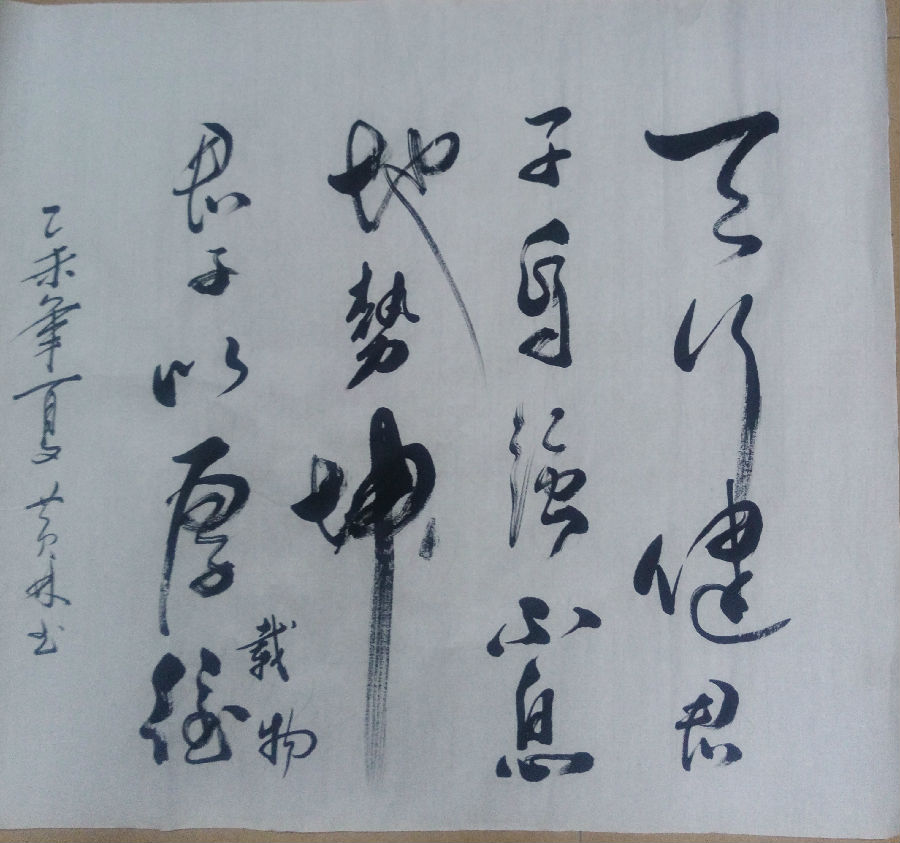 天行健君
子自强不息
地勢坤
君子以厚德
载物
乙未年夏黄永书